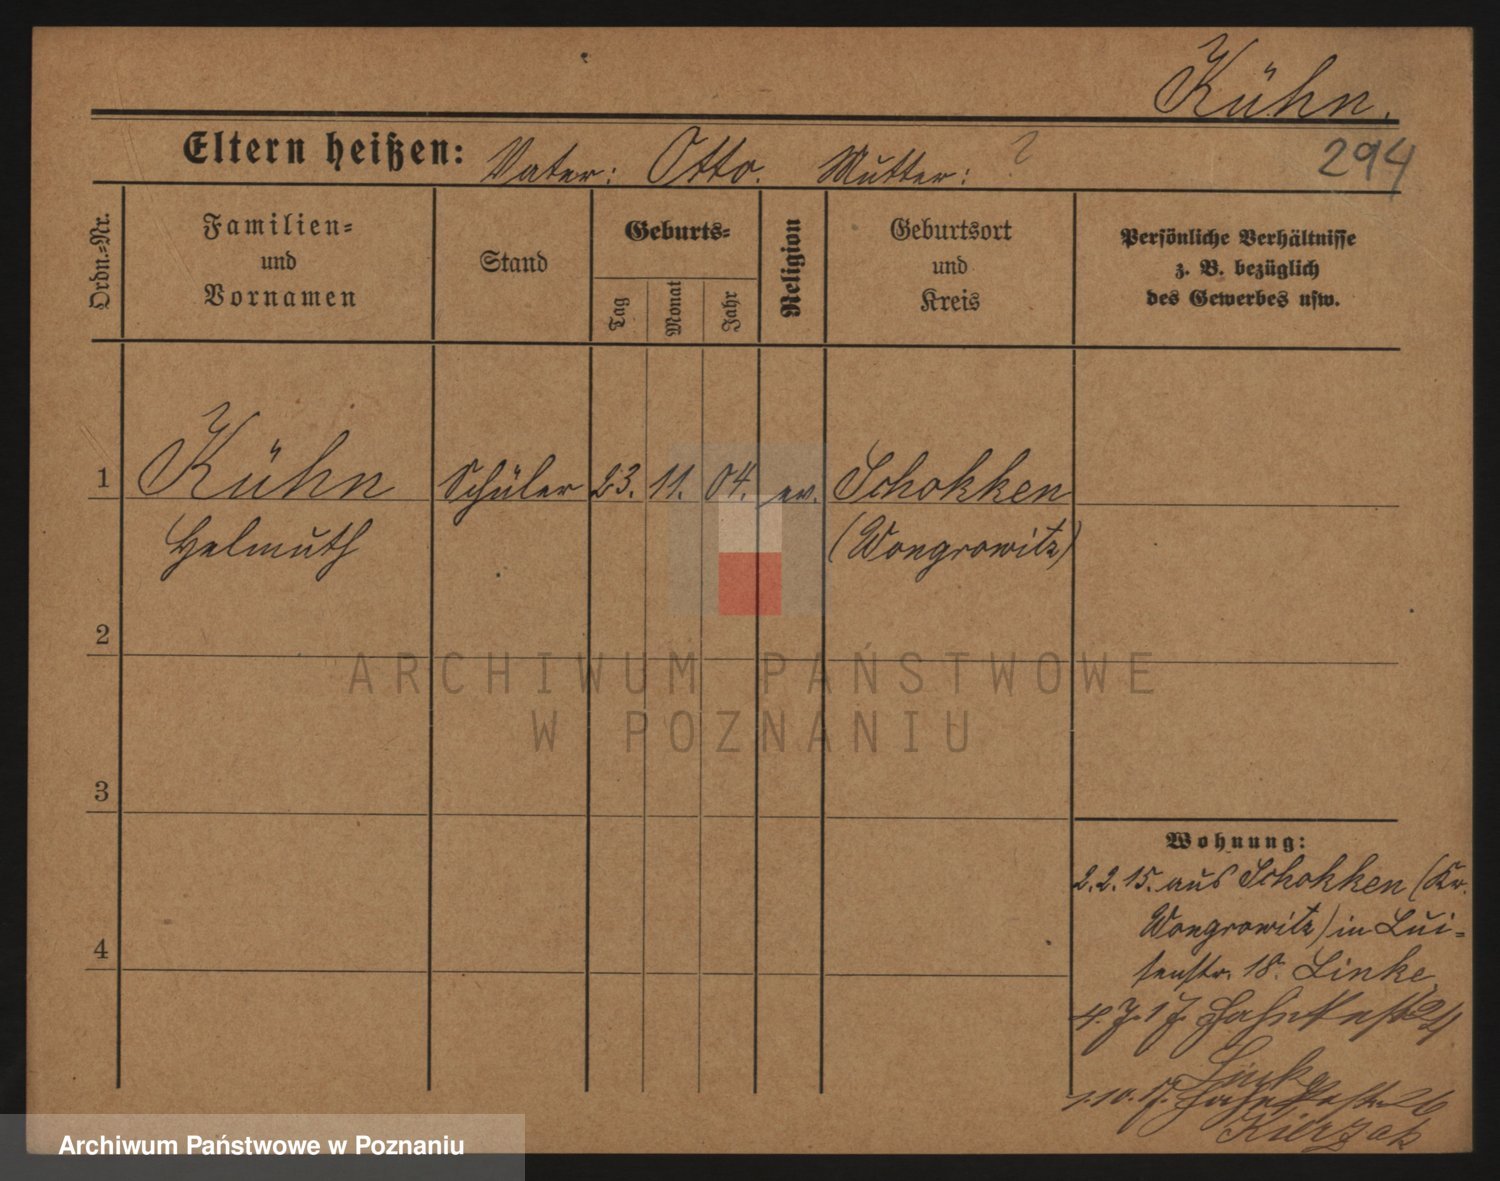 Kühn.
Eltern heißen: Vater: Otto. Mutter: ?
294
Ordn.-Nr.
Familien-
und
Vornamen
Stand
Geburts-
Tag
Monat
Jahr
Religion
Geburtsort
und
Kreis
Persönliche Verhältnisse
z. B. bezüglich
des Gewerbes usw.
1 Kühn Schüler 23. 11. 04. ev. Schokken
Helmuth (Wongrowitz)
2
ARCHIWUM PAŃSTWOWE
W POZNANIU
3
Wohnung:
2.2.15. aus Schokken (Kr.
Wongrowitz) in Lui-
senstr. 18. Linke
4
4.7.17.
Linke
1.10.17.
Kierzak
Archiwum Państwowe w Poznaniu